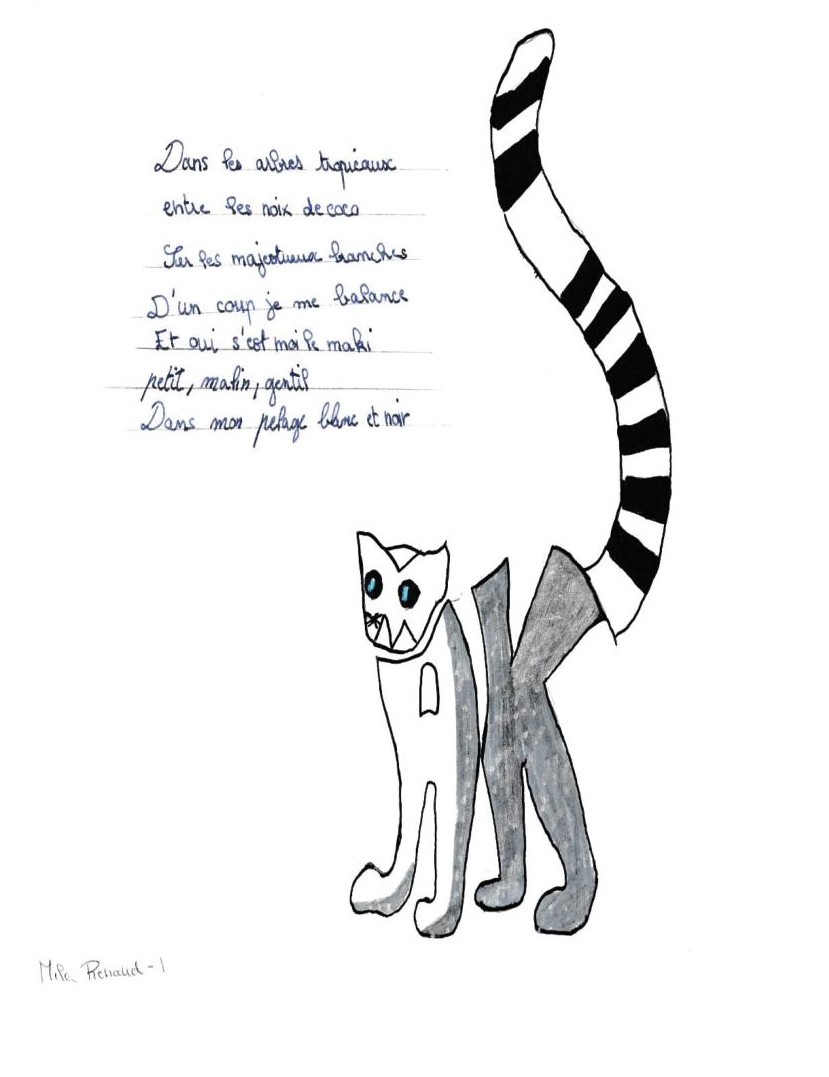 Dans les arbres tropicaux
entre les noix de coco
Sur les majestueux branches
D'un coup je me balance
Et oui s'est moi le maki
petit, malin, gentil
Dans mon pelage blanc et noir
Mila Renaud-1